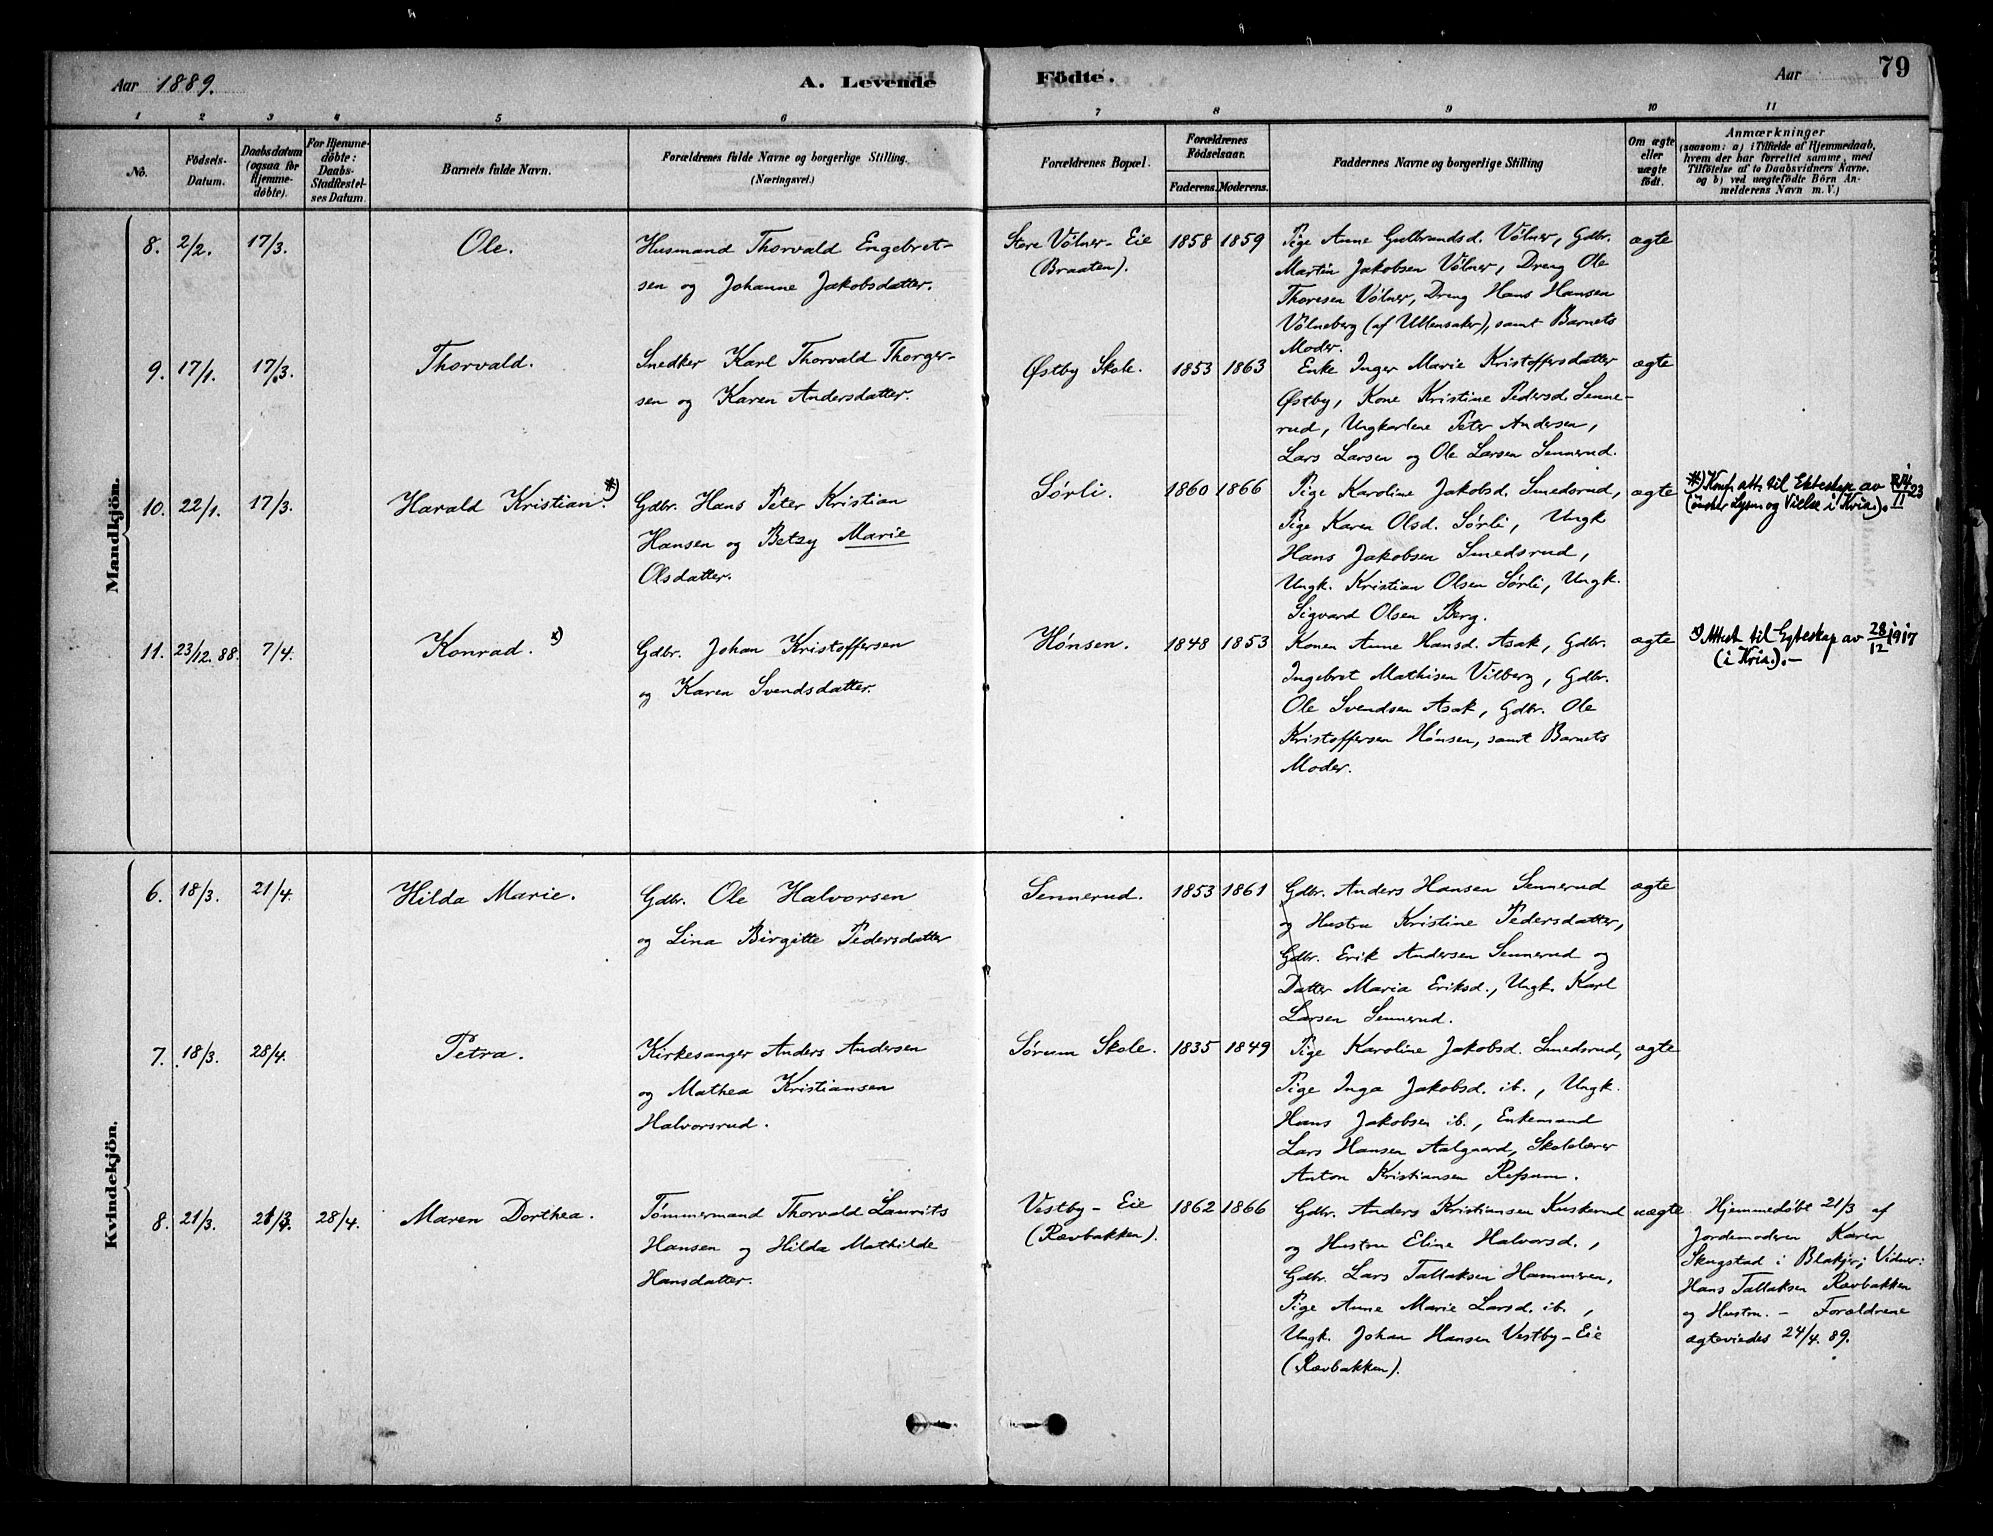 Aar 1889. A. Levende Födte. Aar 79
1 2 3 4 5 6 7 8 9 10 11
No.
Födsels-Datum.
Daabsdatum (ogsaa for Hjemmedöbte).
For Hjemmedöbte: Daabs-Stadfæstelses Datum.
Barnets fulde Navn.
Forældrenes fulde Navne og borgerlige Stilling.
(Næringsvei.)
Forældrenes Bopæl.
Forældrenes Födselsaar.
Faderens. Moderens.
Faddernes Navne og borgerlige Stilling
Om ægte eller uægte födt.
Anmærkninger
(saasom: a) i Tilfælde af Hjemmedaab,
hvem der har forrettet samme, med
Tilföielse af to Daabsvidners Navne,
og b) ved uægtefödte Börn An-
melderens Navn m. V.)
Mandkjön.
8. 2/2. 17/3. Ole.
Husmand Thorvald Engebret-
sen og Johanne Jakobsdatter.
Store Vølner-Eie
(Braaten).
1858 1859
Pige Anne Gulbrandsd. Vølner, Gdbr.
Martin Jakobsen Vølner, Dreng Ole
Thoresen Vølner, Dreng Hans Hansen
Vølneberg (af Ullensaker), samt Barnets
Moder.
ægte
9. 17/1. 17/3. Thorvald.
Snedker Karl Thorvald Thorger-
sen og Karen Andersdatter.
Østby Skole.
1853 1863
Enke Inger Marie Kristoffersdatter
Østby, Kone Kristine Pedersd. Senne-
rud, Ungkarlene Peter Andersen,
Lars Larsen og Ole Larsen Sennerud.
ægte
10. 22/1. 17/3. Harald Kristian. *)
Gdbr. Hans Peter Kristian
Hansen og Betzy Marie
Olsdatter.
Sørli.
1860 1866
Pige Karoline Jakobsd. Smedsrud,
Pige Karen Olsd. Sørli, Ungk
Hans Jakobsen Smedsrud,
Ungk. Kristian Olsen Sørli, Ungk.
Sigvard Olsen Berg.
ægte
*) Konf. att. til Ekteskap av
(önsker Lysn. og Vielse i Kria.).
11. 23/12. 88. 7/4. Konrad. *)
Gdbr. Johan Kristoffersen
og Karen Svendsdatter.
Hønsen.
1848 1853
Konen Anne Hansd. Asak, Gdbr.
Ingebret Mathisen Vilberg, Gdbr.
Ole Svendsen Asak, Gdbr. Ole
Kristoffersen Hønsen, samt Barnets
Moder.
ægte
*) Attest til Egteskap av 28/12 1917
(i Kria.).-
Kvindekjön.
6. 18/3. 21/4. Hilda Marie.
Gdbr. Ole Halvorsen
og Lina Birgitte Pedersdatter
Sennerud.
1853 1861
Gdbr. Anders Hansen Sennerud
og Hustru Kristine Pedersdatter,
Gdbr. Erik Andersen Sennerud og
Datter Maria Eriksd., Ungk. Karl
Larsen Sennerud.
ægte
7. 18/3. 28/4. Petra.
Kirkesanger Anders Andersen
og Mathea Kristiansen
Halvorsrud.
Sørum Skole.
1835 1849
Pige Karoline Jakobsd. Smedsrud,
Pige Inga Jakobsd. ib., Ungk.
Hans Jakobsen ib., Enkemand
Lars Hansen Aalgaard, Skolelærer
Anton Kristiansen Refsum.
ægte
8. 21/3. 21/3. 28/4. Maren Dorthea.
Tømmermand Thorvald Laurits
Hansen og Hilda Mathilde
Hansdatter.
Vestby-Eie
(Rævbakken).
1862 1866
Gdbr. Anders Kristiansen Kuskerud
og Hustru Eline Halvorsd.,
Gdbr. Lars Tallaksen Hammeren,
Pige Anne Marie Larsd. ib.,
Ungk. Johan Hansen Vestby-Eie
(Rævbakken).
uægte
Hjemmedøbt 21/3 af
Jordemoderen Karen
Skogstad i Blakjer; Vidner:
Hans Tallaksen Rævbakken
og Hustru. - Forældrene
ægteviedes 24/4. 89.